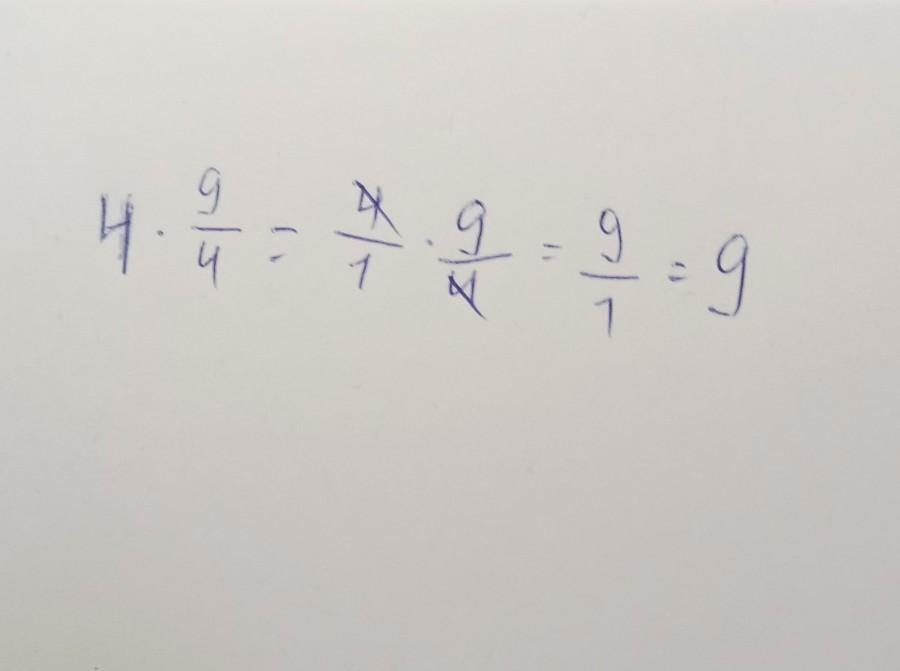 4 · 9/4 = 4/1 · 9/4 = 9/1 = 9